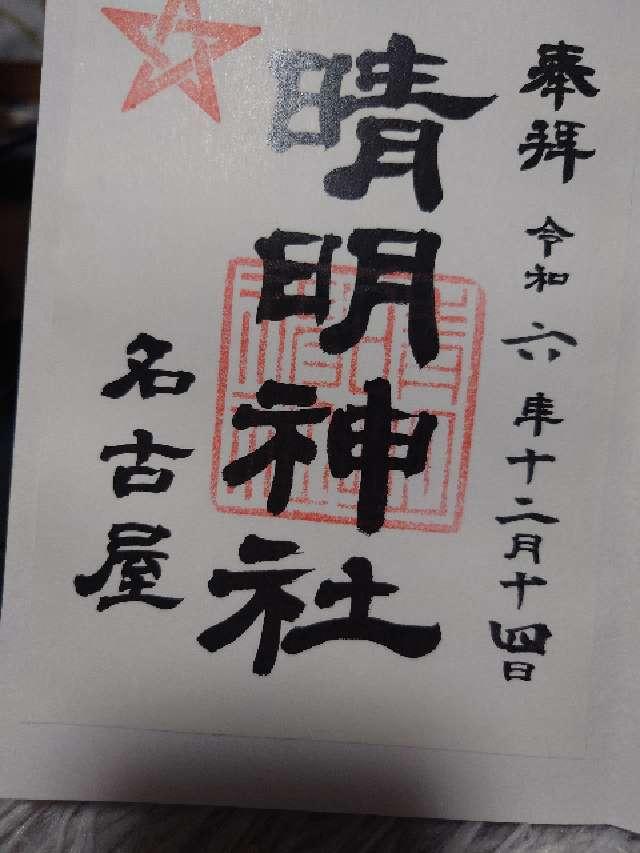 奉拝 令和六年十二月十四日
晴明神社
名古屋